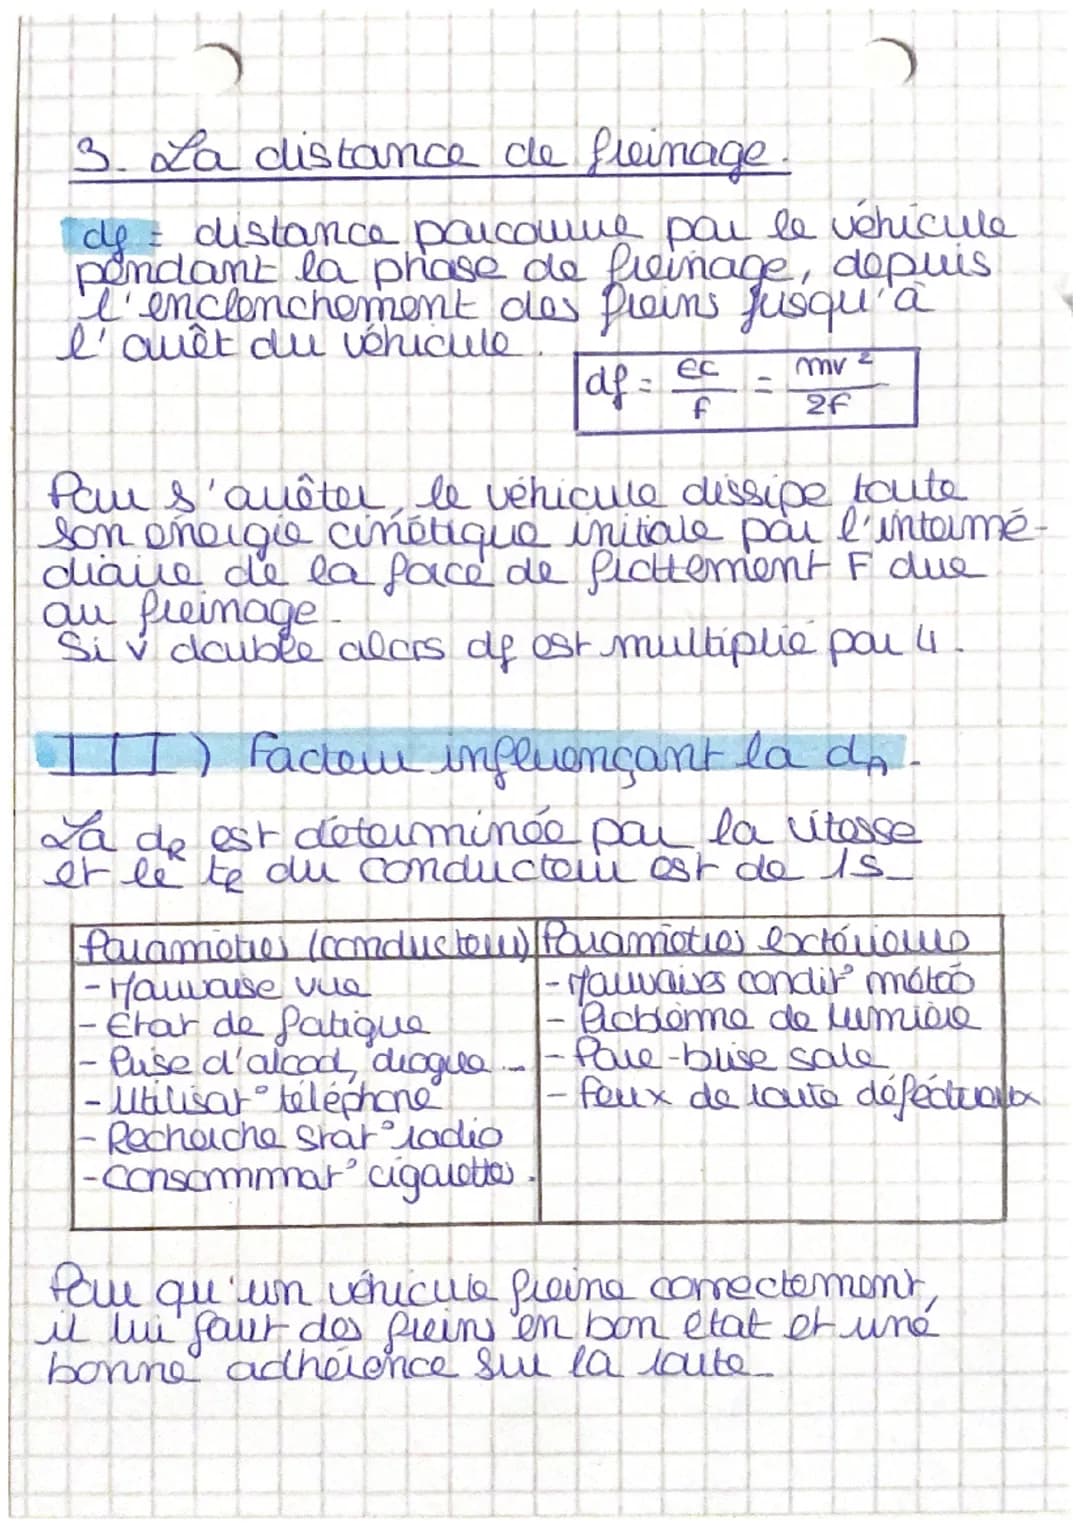 3. La distance de freinage.
df = distance parcourue par le véhicule
pendant la phase de freinage, depuis
l'enclenchement des freins jusqu'à
l'arrêt du véhicule.
df = EC/f = mv²/2F
Pour s'arrêter, le véhicule dissipe toute
son énergie cinétique initiale par l'intermé-
diaire de la force de frottement F due
au freinage.
Si v double alors df est multiplié par 4.
III) Facteur influençant la dA.
La dR est déterminée par la vitesse
et le tR du conducteur est de 1s
Paramètres (conducteur) | Paramètres extérieurs
- Mauvaise vue | - Mauvaises condit° météo
- État de fatigue | - Problème de lumière
- Prise d'alcool, drogue... | - Pare-brise sale
- Utilisat° téléphone | - Feux de route défectueux
- Recherche stat° radio
- Consommat° cigarettes.
Pour qu'un véhicule freine correctement,
il lui faut des freins en bon état et une
bonne adhérence sur la route